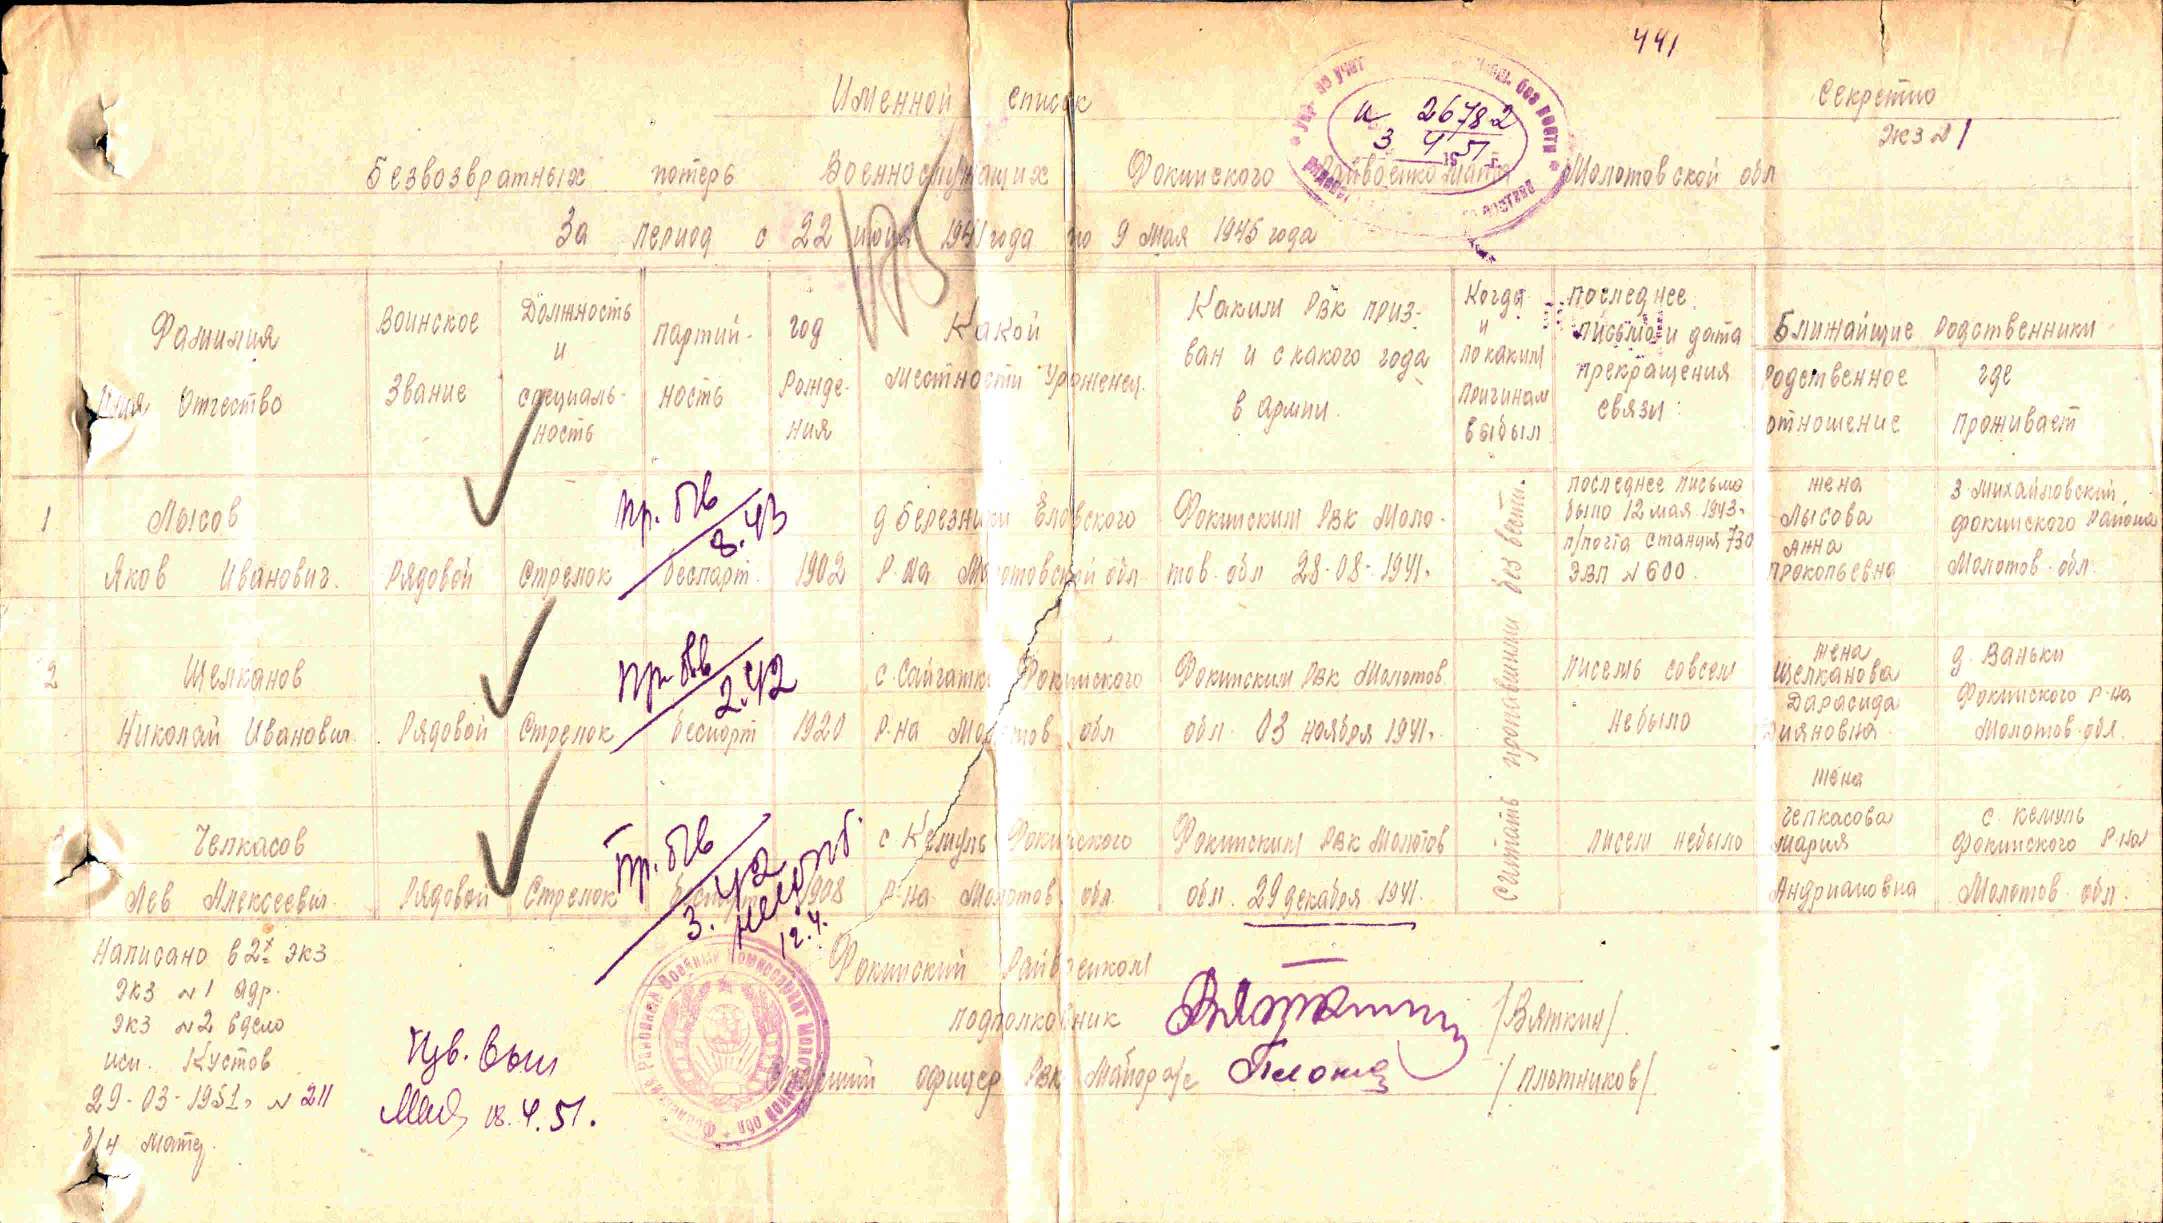 441
Именной список
Секретно
Экз № 1
и 26782
3 4 51
Безвозвратных потерь Военнослужащих Фокинского Райвоенкомата Молотовской обл
За период с 22 июня 1941 года по 9 мая 1945 года
Фамилия
Имя Отчество
Воинское
Звание
Должность
и
специаль-
ность
партий-
ность
год
Рожде-
ния
Какой
местности Уроженец.
Каким Рвк приз-
ван и с какого года
в армии.
Когда
и
по каким
причинам
выбыл
последнее
письмо и дата
прекращения
связи
Ближайшие Родственники
Родственное
отношение
где
проживает
1
Лысов
Яков Иванович.
Рядовой
Стрелок
беспарт.
пр. б/в
8.43
1902
д Березники Еловского
Р-на Молотовской обл
Фокинским Рвк Моло-
тов. обл 28-08-1941г.
Считать пропавшими без вести.
последнее письмо
было 12 мая 1943г
п/почта станция 730
ЗВП № 600.
жена
Лысова
Анна
Прокопьевна
з Михайловский,
Фокинского Района
Молотов. обл.
2
Щелканов
Николай Иванович
Рядовой
Стрелок
беспарт
пр. б/в
2.42
1920
с. Сайгатка Фокинского
Р-на Молотов обл
Фокинским Рвк Молотов.
обл. 03 ноября 1941г.
писем совсем
небыло
жена
Щелканова
Дарасида
д. Ваньки
Фокинского Р-на
Молотов-обл.
Чепкасов
Лев Алексеевич.
Рядовой
Стрелок
пр. б/в
3.42
12.4.
1908
с Кемуль Фокинского
Р-на Молотов обл.
Фокинским Рвк Молотов
обл. 29 декабря 1941.
писем небыло
жена
Чепкасова
Мария
Андриановна
с. Кемуль
Фокинского Р-на
Молотов-обл.
Написано в 2х экз
экз № 1 адр.
экз № 2 вдело
исп. Кустов
29-03-1951г № 211
Изв. выс
08.4.51.
Фокинский Райвоенком
подполковник /Вяткин/
Старший офицер Рвк Майор а/с /Плотников/